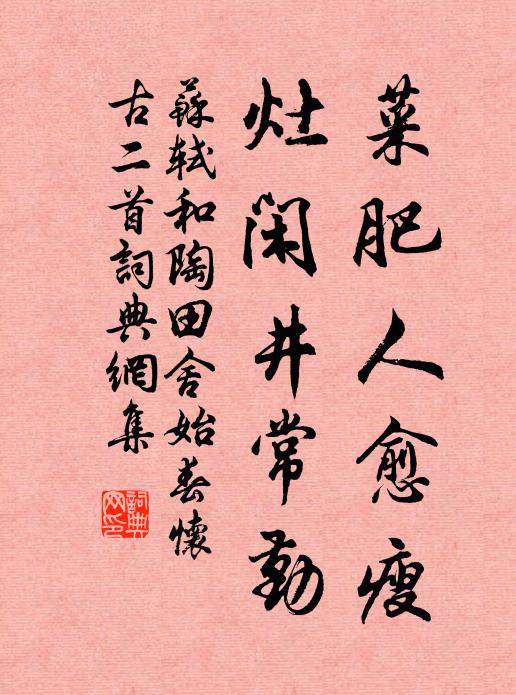 菜肥人愈瘦
灶閑井常勤
蘇軾和陶田舍始春懷
古二首詞典網集
詞典
网印